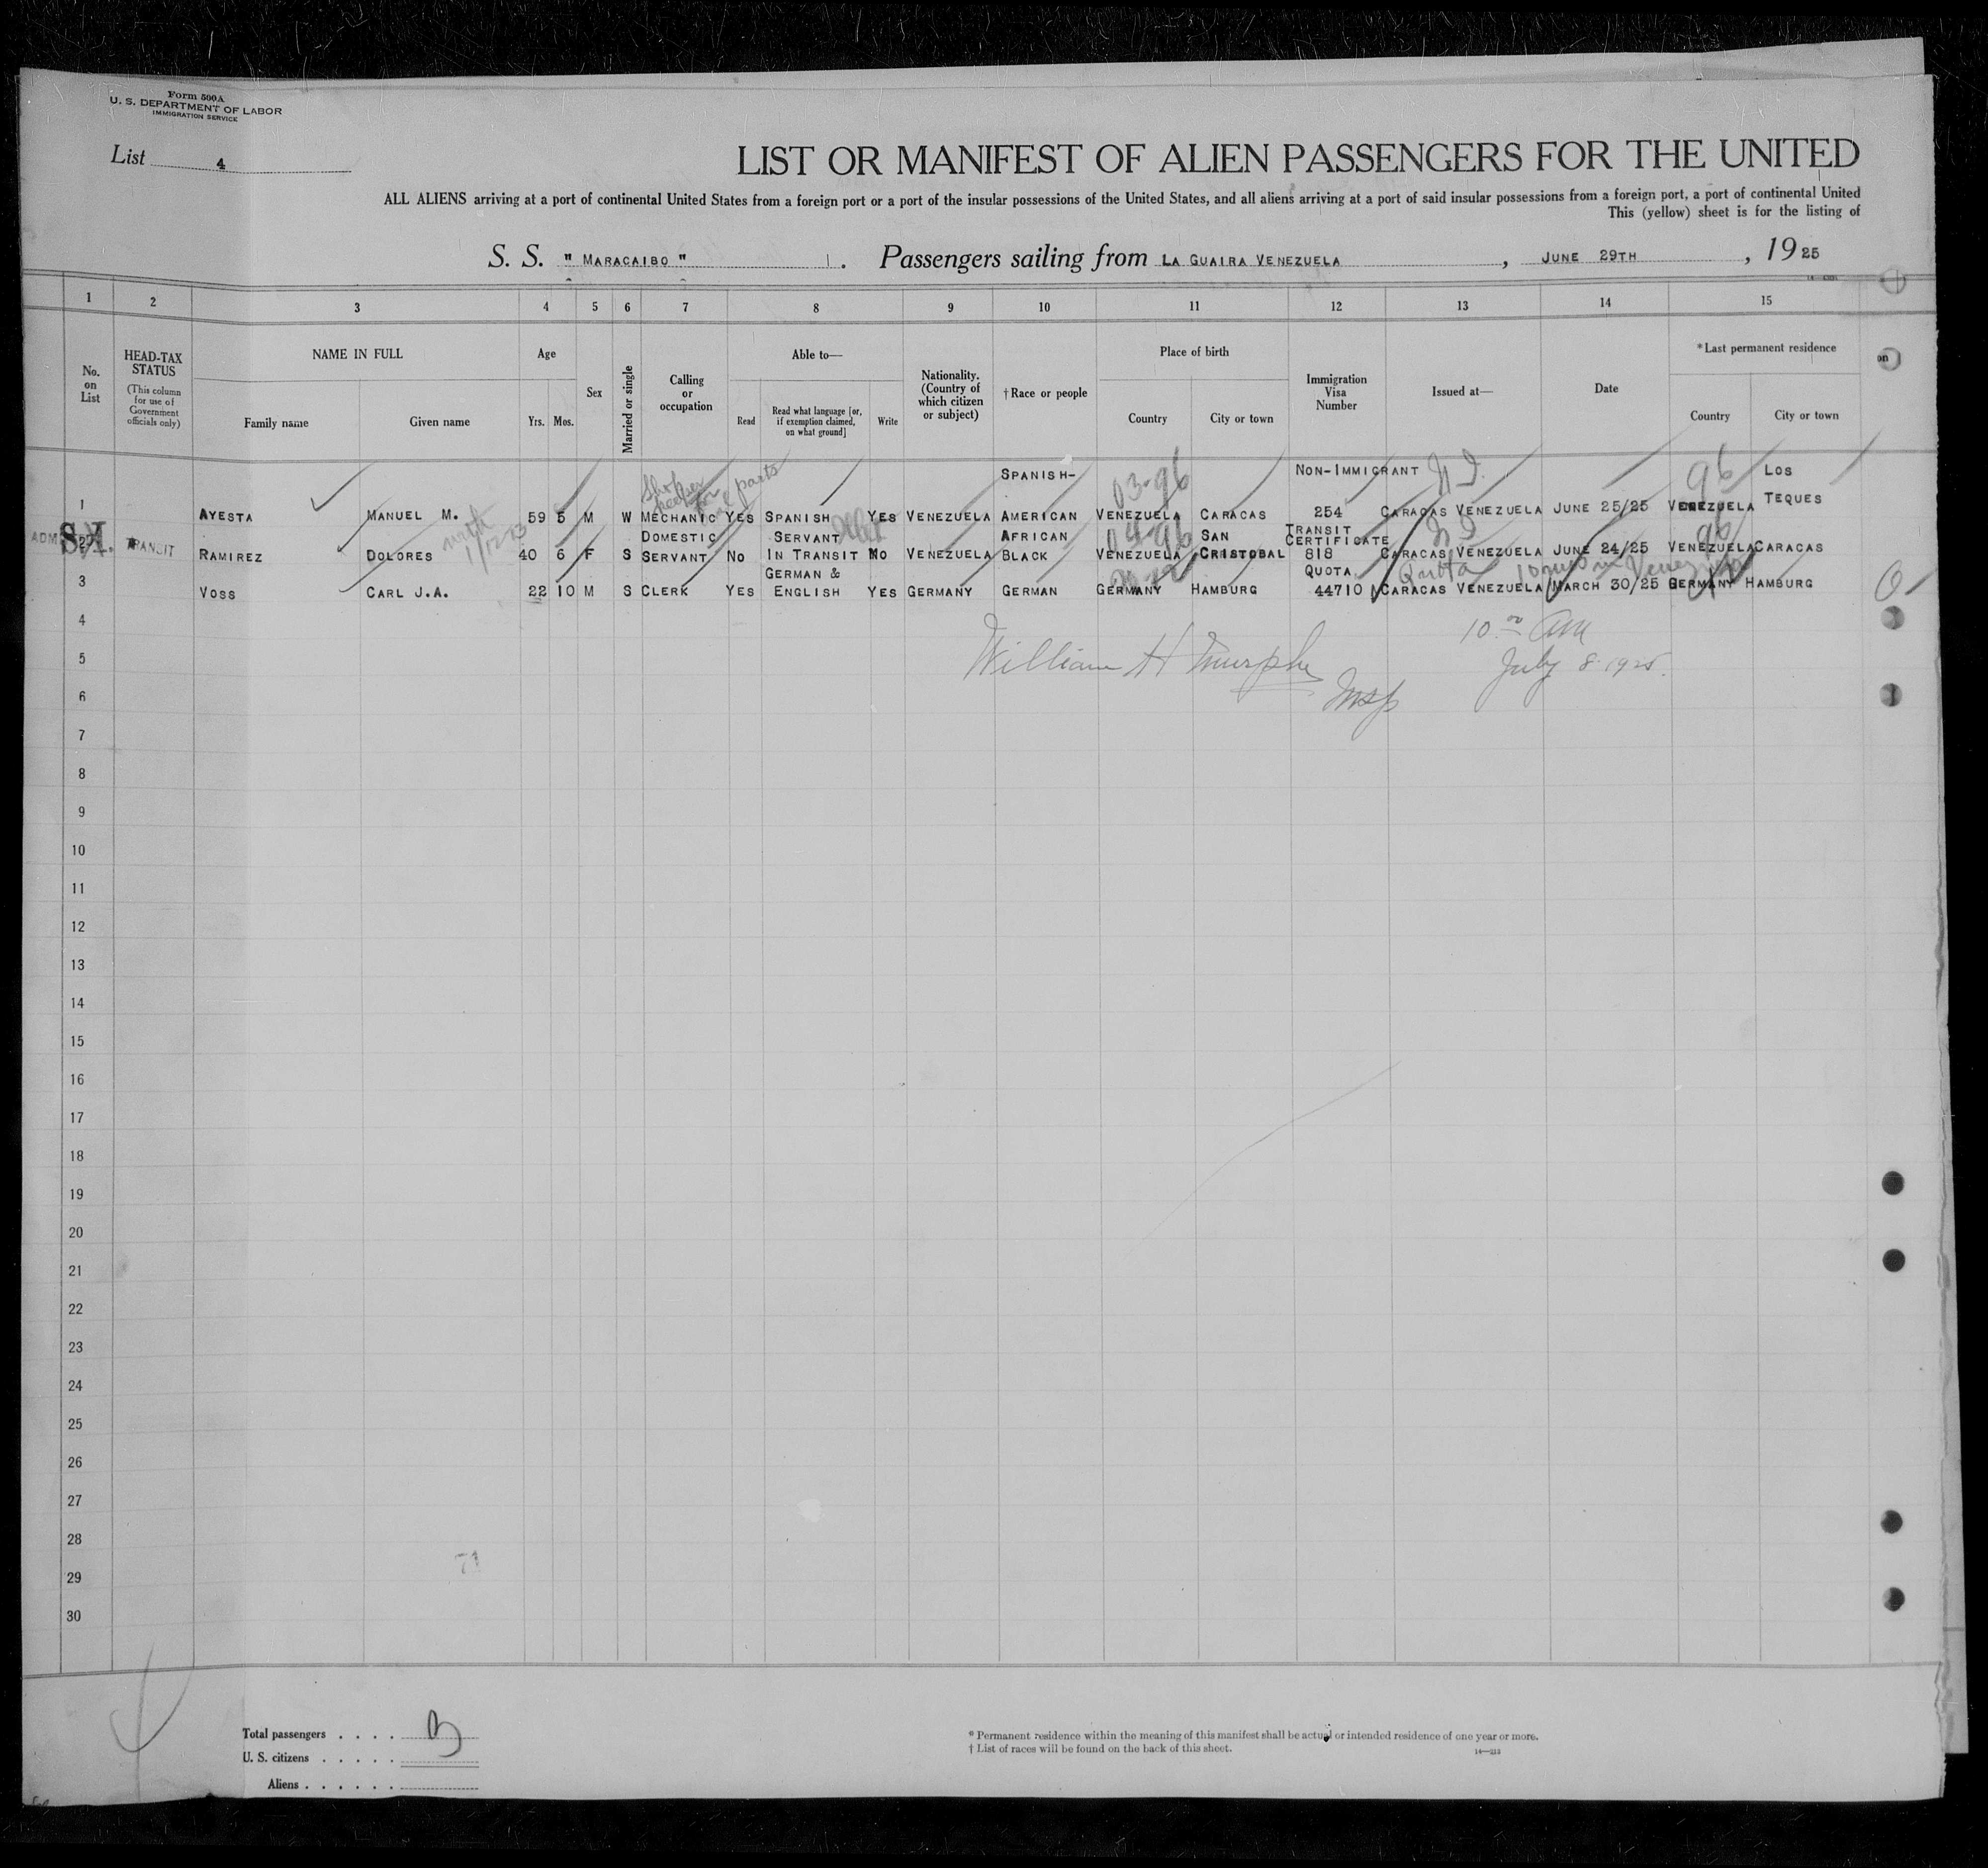 Form 500 A
U. S. DEPARTMENT OF LABOR
IMMIGRATION SERVICE
List 4
LIST OR MANIFEST OF ALIEN PASSENGERS FOR THE UNITED
ALL ALIENS arriving at a port of continental United States from a foreign port or a port of the insular possessions of the United States, and all aliens arriving at a port of said insular possessions from a foreign port, a port of continental United
This (yellow) sheet is for the listing of
S. S. " MARACAIBO ". Passengers sailing from LA GUAIRA VENEZUELA, JUNE 29TH, 1925
1 2 3 4 5 6 7 8 9 10 11 12 13 14 15
No. on List
HEAD-TAX STATUS
(This column for use of Government officials only)
NAME IN FULL
Family name Given name
Age
Yrs. Mos.
Sex
Married or single
Calling or occupation
Able to—
Read Read what language [or, if exemption claimed, on what ground] Write
Nationality. (Country of which citizen or subject)
† Race or people
Place of birth
Country City or town
Immigration Visa Number
Issued at—
Date
* Last permanent residence
Country City or town
on
SPANISH- 03-96 NON-IMMIGRANT 96 LOS
Shop keeper for parts
1 AYESTA MANUEL M. 59 5 M W MECHANIC YES SPANISH YES VENEZUELA AMERICAN VENEZUELA CARACAS 254 CARACAS VENEZUELA JUNE 25/25 VENEZUELA TEQUES
DOMESTIC SERVANT AFRICAN SAN TRANSIT CERTIFICATE 96
ADM S.I. TRANSIT RAMIREZ DOLORES with 40 6 F S SERVANT NO IN TRANSIT NO VENEZUELA BLACK VENEZUELA CRISTOBAL 818 CARACAS VENEZUELA JUNE 24/25 VENEZUELA CARACAS
GERMAN & QUOTA Quota
3 VOSS CARL J.A. 22 10 M S CLERK YES ENGLISH YES GERMANY GERMAN GERMANY HAMBURG 44710 CARACAS VENEZUELA MARCH 30/25 GERMANY HAMBURG
4
10 00 am
5
William H Murphy
July 8 1925.
6
Insp
7
8
9
10
11
12
13
14
15
16
17
18
19
20
21
22
23
24
25
26
27
28
71
29
30
Total passengers . . . . 3
U. S. citizens . . . . .
Aliens . . . . . .
* Permanent residence within the meaning of this manifest shall be actual or intended residence of one year or more.
† List of races will be found on the back of this sheet.
14—213